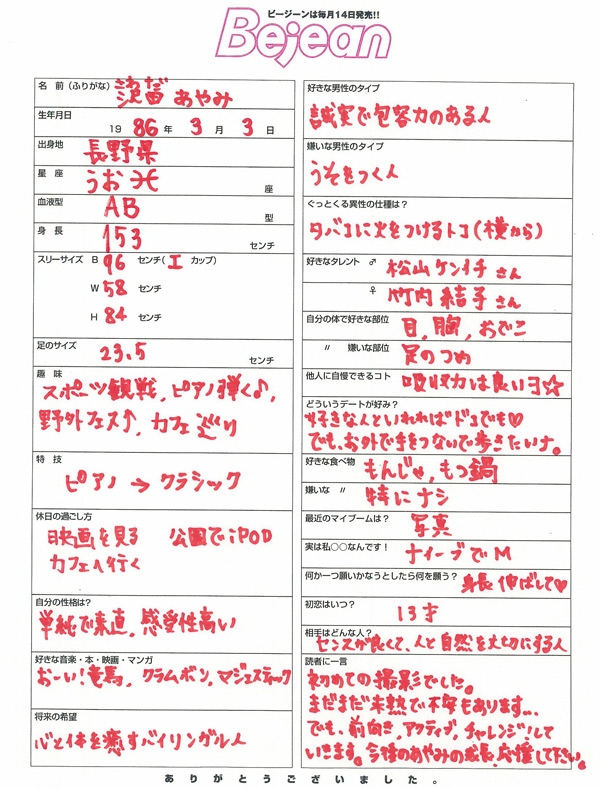 ビージーンは毎月14日発売!!
Bejean
名 前 (ふりがな) あやみ
生年月日
19 86 年 3 月 3 日
出身地 長野県
星 座 うお ♓ 座
血液型 AB 型
身 長 153 センチ
スリーサイズ B 96 センチ( I カップ)
W 58 センチ
H 84 センチ
足のサイズ 23.5 センチ
趣 味
スポーツ観戦, ピアノ弾く♪,
野外フェス↑, カフェ巡り
特 技
ピアノ → クラシック
休日の過ごし方
映画を見る 公園でiPOD
カフェへ行く
自分の性格は?
単純で素直, 感受性高い
好きな音楽・本・映画・マンガ
おーい!竜馬, クラムボン, マジェスティック
将来の希望
心と体を癒すバイリンガル人
好きな男性のタイプ
誠実で包容力のある人
嫌いな男性のタイプ
うそをつく人
ぐっとくる異性の仕種は?
タバコに火をつけるトコ(横から)
好きなタレント ♂ 松山ケンイチ さん
♀ 竹内結子 さん
自分の体で好きな部位 目, 胸, おでこ
〃 嫌いな部位 足のつめ
他人に自慢できるコト 吸収力は良いヨ☆
どういうデートが好み?
好きな人といれればドコでも♡
でも、お外で手をつないで歩きたいナ。
好きな食べ物 もんじゃ, もつ鍋
嫌いな 〃 特にナシ
最近のマイブームは? 写真
実は私○○なんです! ナイーブでM
何か一つ願いかなうとしたら何を願う? 身長 伸ばして♡
初恋はいつ? 13才
相手はどんな人?
センスが良くて、人と自然を大切にする人
読者に一言
初めての撮影でした。
まだまだ未熟で不安もあります…
でも、前向き, アクティブ, チャレンジ!して
いきます。今後のあやみの成長, 応援して下さい。
ありがとうございました。